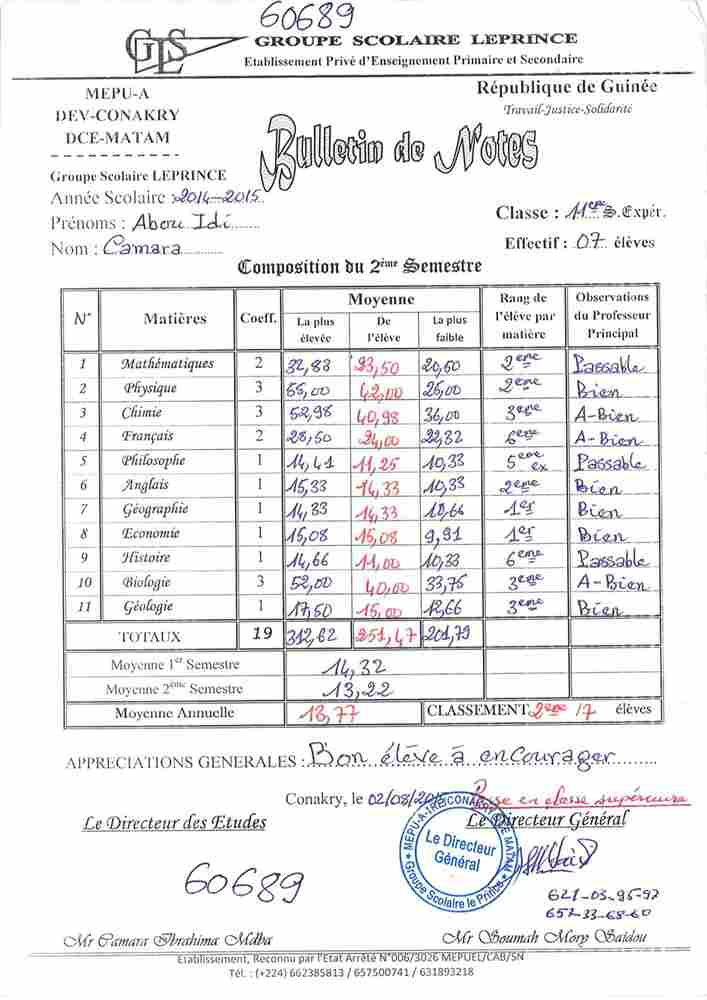 60689
GLS
GROUPE SCOLAIRE LEPRINCE
Etablissement Privé d'Enseignement Primaire et Secondaire
MEPU-A
DEV-CONAKRY
DCE-MATAM
République de Guinée
Travail-Justice-Solidarité
Bulletin de Notes
Groupe Scolaire LEPRINCE
Année Scolaire : 2014-2015
Prénoms : Abou Idi
Nom : Camara
Classe : 11ème S.Expér.
Effectif : 07 élèves
Composition du 2ème Semestre
N° Matières Coeff. Moyenne Rang de l'élève par matière Observations du Professeur Principal
La plus élevée De l'élève La plus faible
1 Mathématiques 2 32,83 23,50 20,50 2ème Passable
2 Physique 3 55,00 42,00 25,00 2ème Bien
3 Chimie 3 52,98 40,98 36,00 3ème A-Bien
4 Français 2 28,50 24,00 22,32 6ème A-Bien
5 Philosophe 1 14,41 11,25 10,33 5ème ex Passable
6 Anglais 1 15,33 14,33 10,33 2ème Bien
7 Géographie 1 14,33 14,33 10,66 1er Bien
8 Economie 1 15,08 15,08 9,91 1er Bien
9 Histoire 1 14,66 11,00 10,33 6ème Passable
10 Biologie 3 52,00 40,00 33,75 3ème A-Bien
11 Géologie 1 17,50 15,00 12,66 3ème Bien
TOTAUX 19 312,62 251,47 201,79
Moyenne 1er Semestre 14,32
Moyenne 2ème Semestre 13,22
Moyenne Annuelle 13,77 CLASSEMENT 2ème /7 élèves
APPRECIATIONS GENERALES : Bon élève à encourager
Conakry, le 02/08/2015 en classe supérieure
Le Directeur des Etudes
Le Directeur Général
MEPU-A-IRE/CONAKRY MATAM
Le Directeur Général
Groupe Scolaire le Prince
60689
621-03-95-92
657-33-68-60
Mr Camara Ibrahima Mdba
Mr Soumah Mory Saïdou
Etablissement, Reconnu par l'Etat Arrêté N°006/3026 MEPUEL/CAB/SN
Tél. : (+224) 662385813 / 657500741 / 631893218